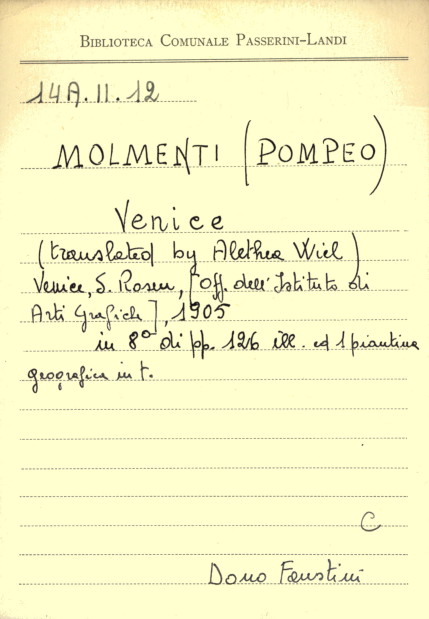 BIBLIOTECA COMUNALE PASSERINI-LANDI
14A.II.12
MOLMENTI (POMPEO)
Venice
(translated by Alethea Wiel)
Venice, S. Rosen, [Off. dell'Istituto di
Arti Grafiche], 1905
in 8° di pp. 126 ill. ed 1 piantina
geografica in t.
C
Dono Faustini